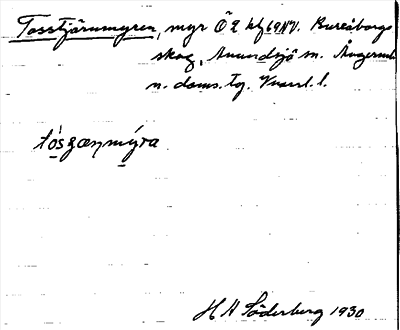 Tosstjärnmyren, myr Ö 2 kf 69NV. Bureåborgs
skog, Anundsjö sn. Ångerml.
n. doms. tg. Vsternl. l.
tósʒæŋmýra
H A Söderberg 1930